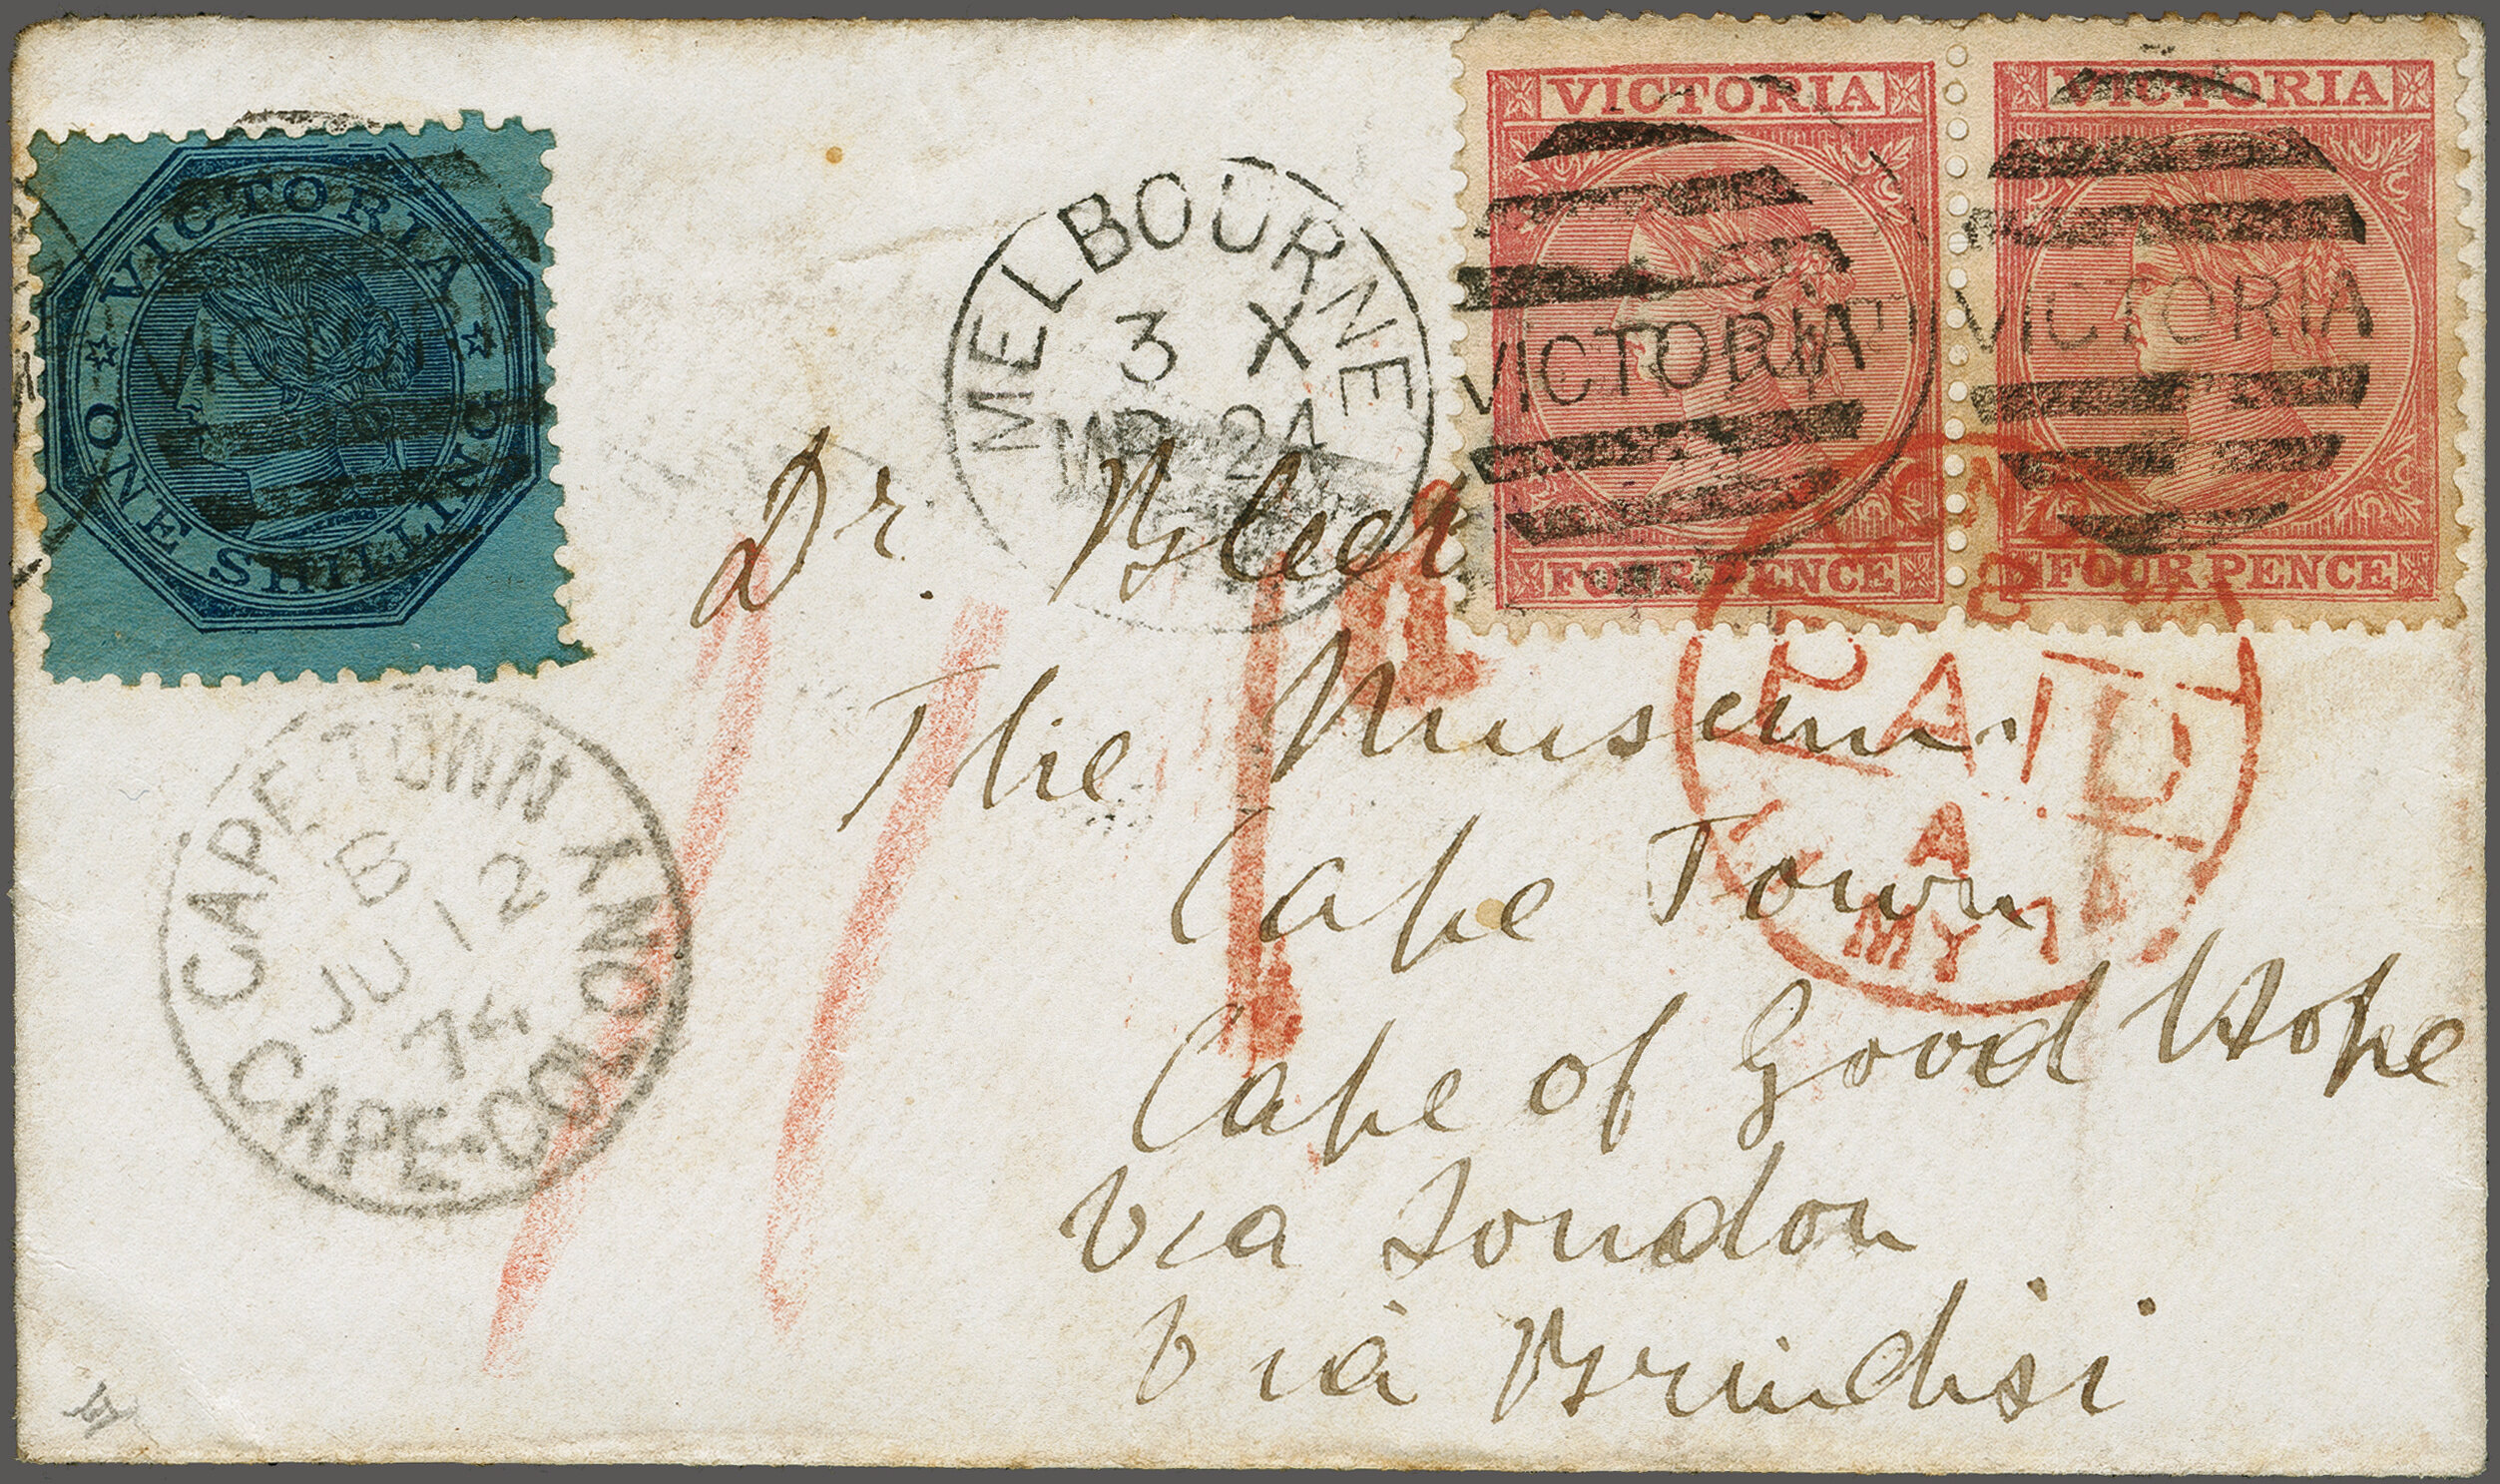 VICTORIA
ONE SHILLING
VICTORIA
MELBOURNE
3 X
MR 24
VICTORIA
FOUR PENCE
VICTORIA
VICTORIA
FOUR PENCE
VICTORIA
PAID
A
MY
Dr. Bleek
The Museum
Cape Town
Cape of Good Hope
Via London
Via Brindisi
CAPE TOWN
B
JU 12
74
CAPE COLONY